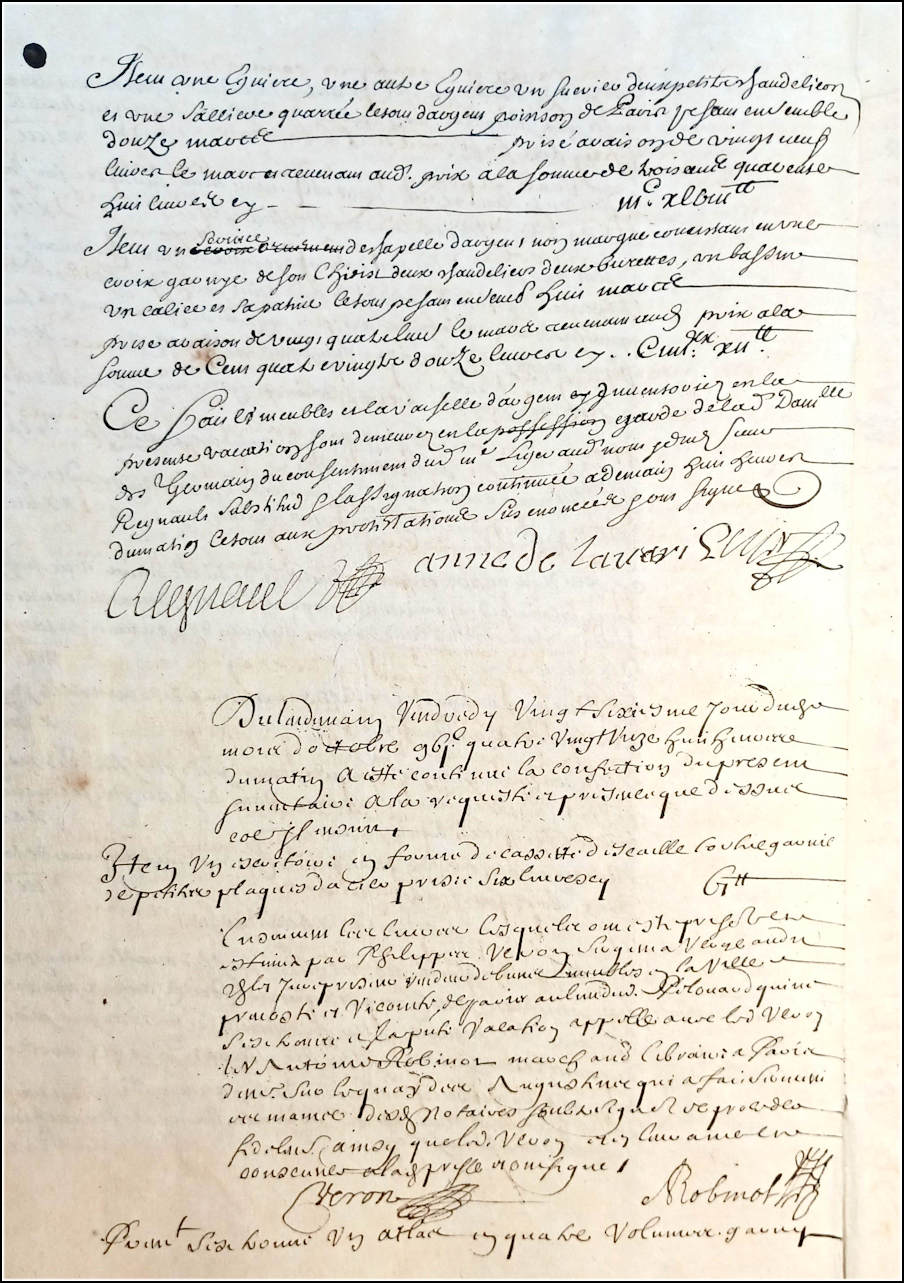 Item une Eguiere, une autre Eguiere un sucrier deux petits chandeliers
et une salliere quarrée le tout d'argent poinson de Paris pesant ensemble
douze marcs prisé a raison de vingt neuf
livres le marc revenant aud. prix a la somme de trois cent quarente
huit livres cy iijc xlviij tt
Item un service de chapelle d'argent non marqué consistant en une
croix garnye de son Christ deux chandeliers deux burettes, un bassin
un calice et sa patine le tout pesant ensemb huit marcs
prisé a raison de vingt quatre livres le marc revenant aud prix a la
somme de Cent quatre vingts douze livres cy .. C iiijxx xij tt
Ce fait les meubles et la vaisselle d'argent cy inventoriez en la
presente vacation sont demeurez en la possession et garde de lad Damlle
de St Germain du consentement dud me Liger aud nom et dud sieur
Regnault substitud et l'assignation continuée a demain huit heures
du matin le tout aux protestations sus enoncées et ont signé
Regnault anne de lavari Liger
Du lendemain Vendredy Vingt sixiesme jour dud
mois d'octobre gbjc quatre vingt unze huit heures
du matin a esté continué la confection du present
inventaire a la requeste et presence que dessus
comme il ensuit
Item un escritoire en forme de cassette d'escaille toutte garnie
de petittes plaques d'acier prisée six livres cy 6 tt
Ensuivent les livres lesquels ont esté prisez et
estimez par Philippes Veron sergent a Verge
juré priseur vendeur de biens meubles en la Ville
prevosté et Vicomté de Paris
appellé avec led Veron
Antoine Robinot marchand libraire a Paris
demt. sur le quay des Augustins qui a fait serment
es mains desd Notaires soubzsignez de proceder
fidelement ainsy que led. Veron et en leur ame et
conscience a lad prisée et ont signé
Veron ARobinot
Premt. six livres un atlas en quatre volumes garny